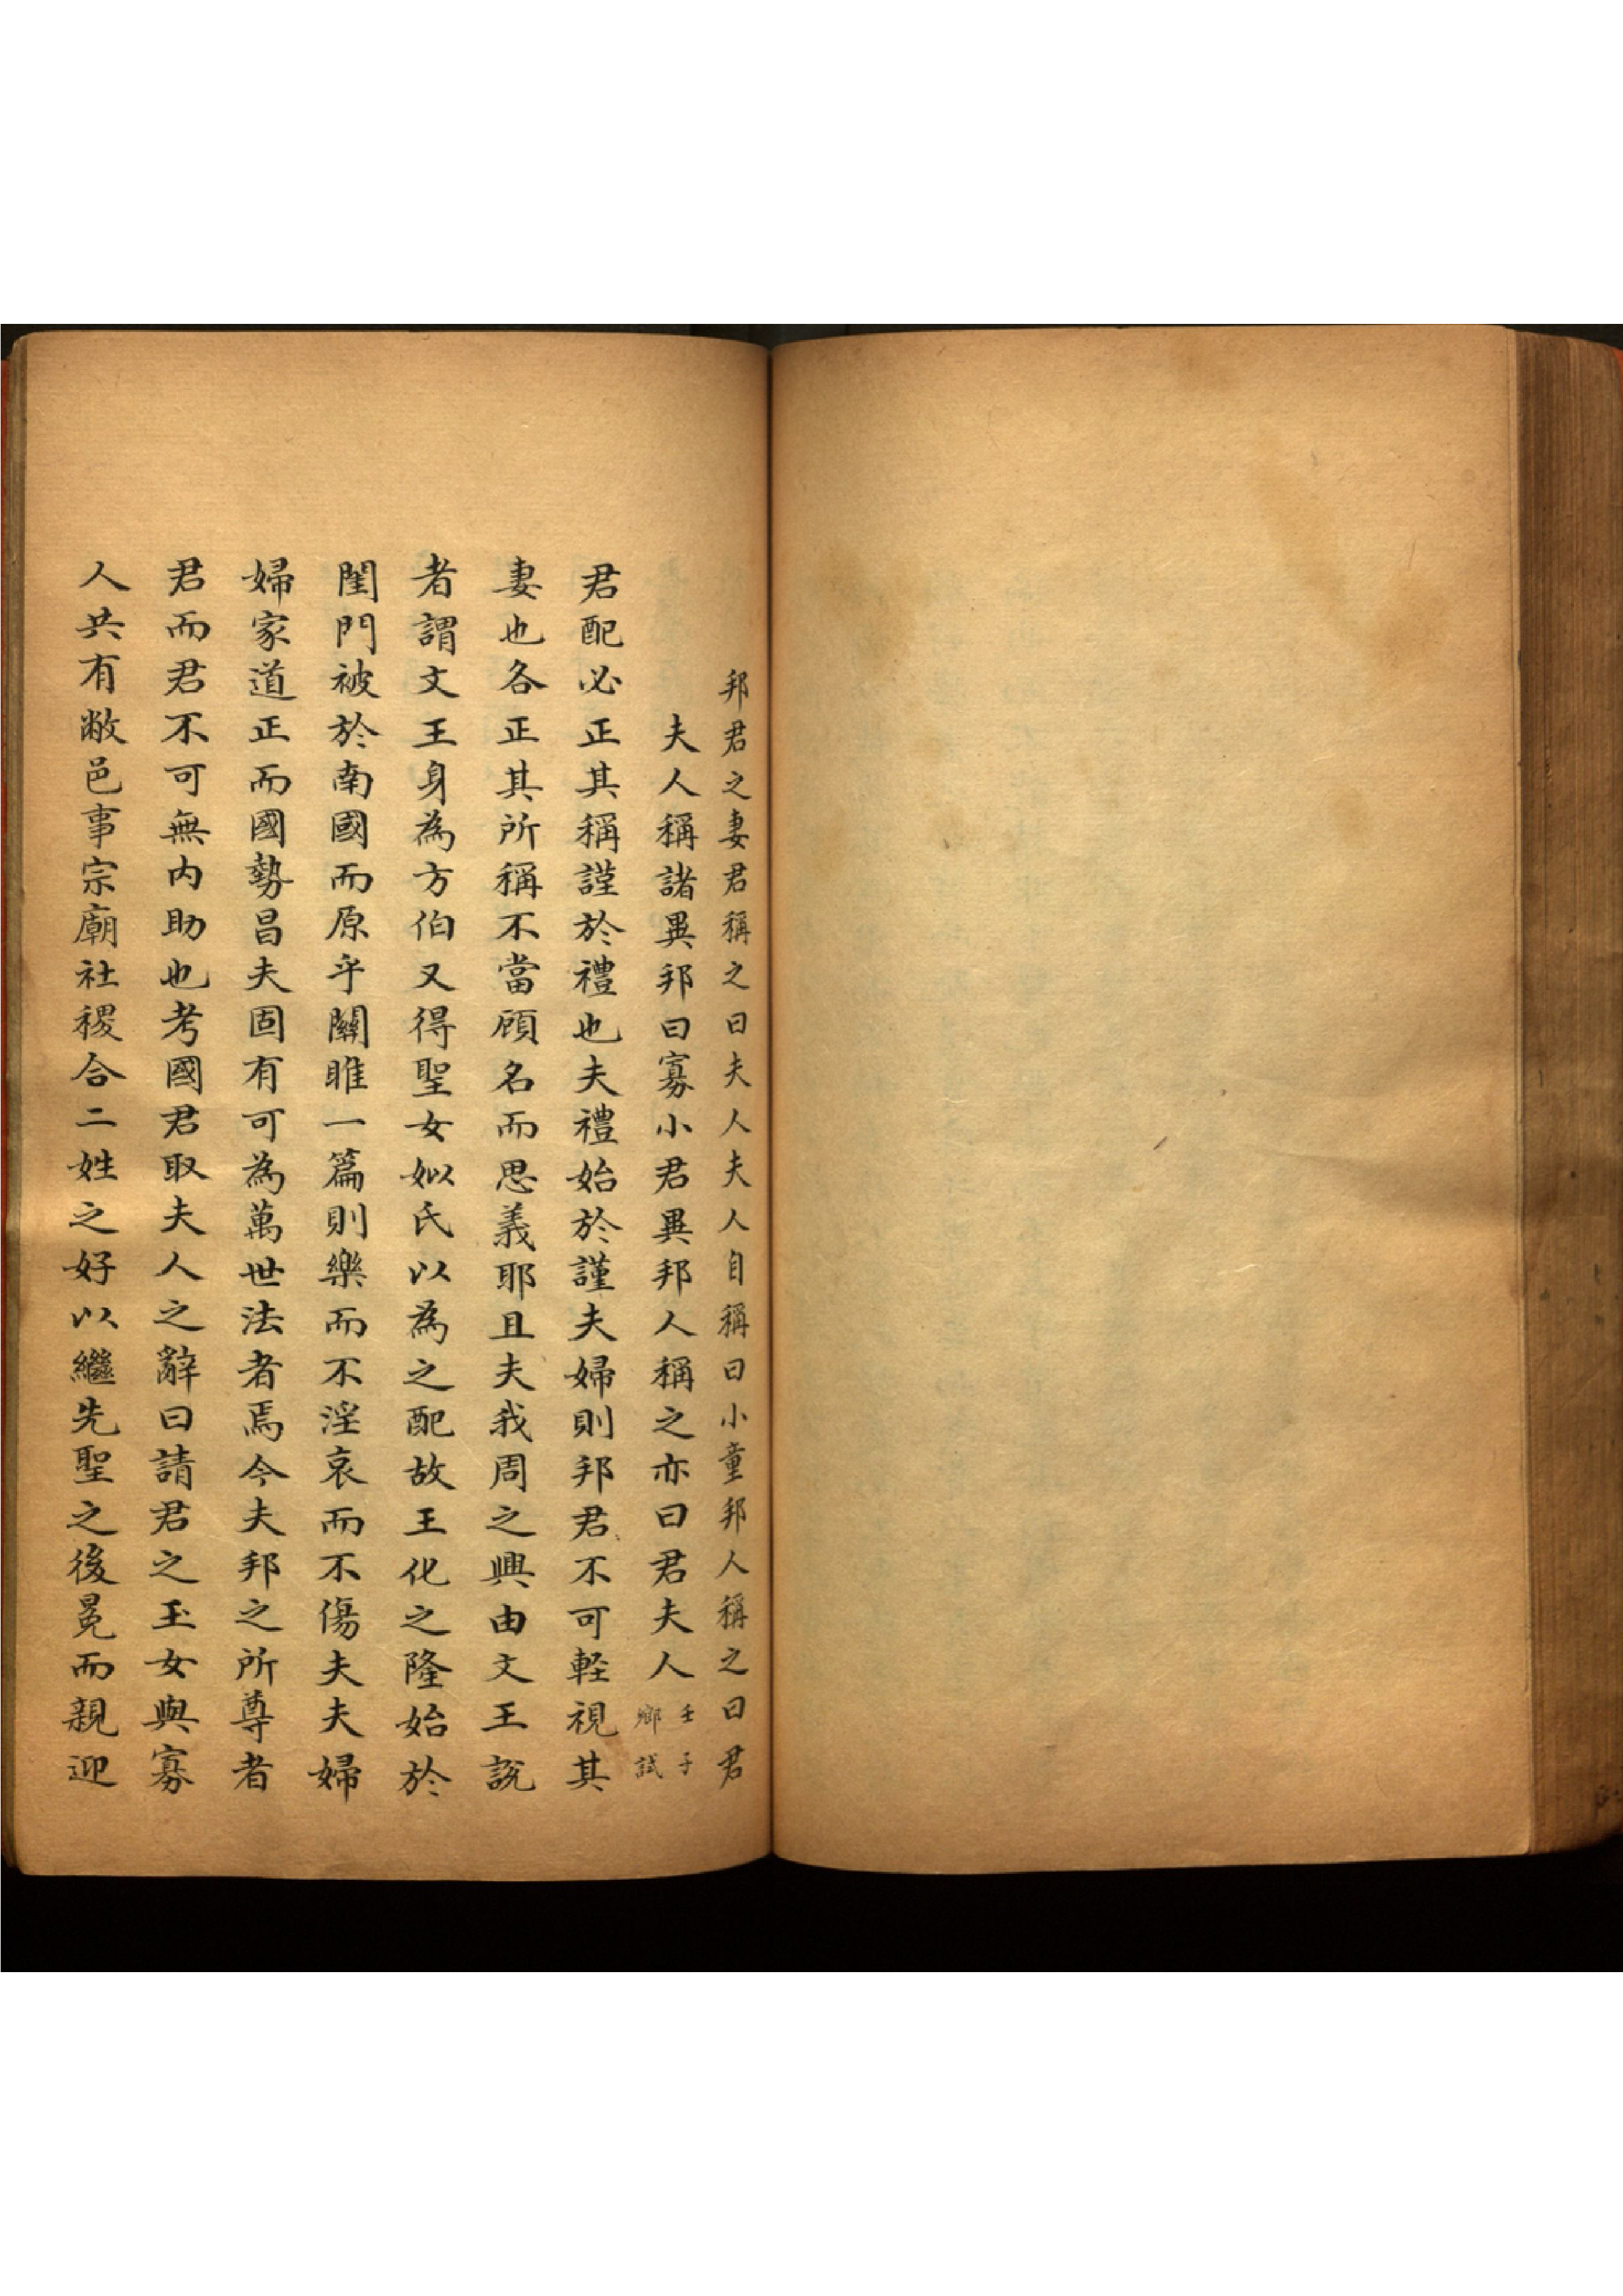 邦君之妻君稱之曰夫人夫人自稱曰小童邦人稱之曰君
夫人稱諸異邦曰寡小君異邦人稱之亦曰君夫人
壬子
鄉試
君配必正其稱謹於禮也夫禮始於謹夫婦則邦君不可軽視其
妻也各正其所稱不當顧名而思義耶且夫我周之興由文王說
者謂文王身為方伯又得聖女姒氏以為之配故王化之隆始於
閨門被於南國而原乎關雎一篇則樂而不淫哀而不傷夫夫婦
婦家道正而國勢昌夫固有可為萬世法者焉今夫邦之所尊者
君而君不可無內助也考國君取夫人之辭曰請君之玉女與寡
人共有敝邑事宗廟社稷合二姓之好以繼先聖之後冕而親迎